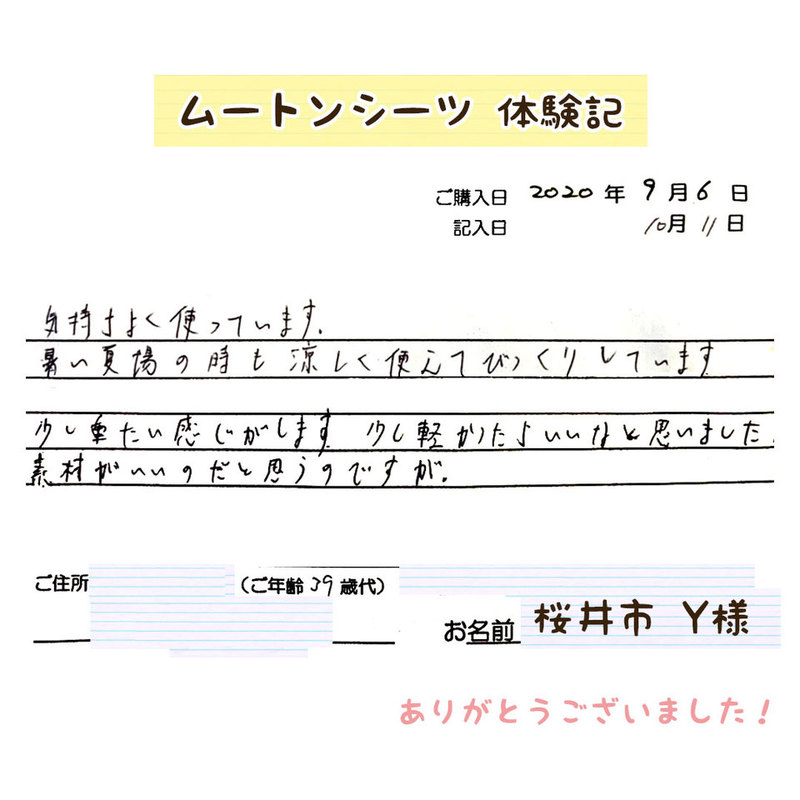 ムートンシーツ 体験記
ご購入日 2020 年 9 月 6 日
記入日 10月 11日
気持ちよく使っています.
暑い夏場の時も涼しく使えてびっくりしています
少し重たい感じがします 少し軽かったらいいなと思いました.
素材がいいのだと思うのですが.
ご住所 (ご年齢 39 歳代)
お名前 桜井市 Y様
ありがとうございました!